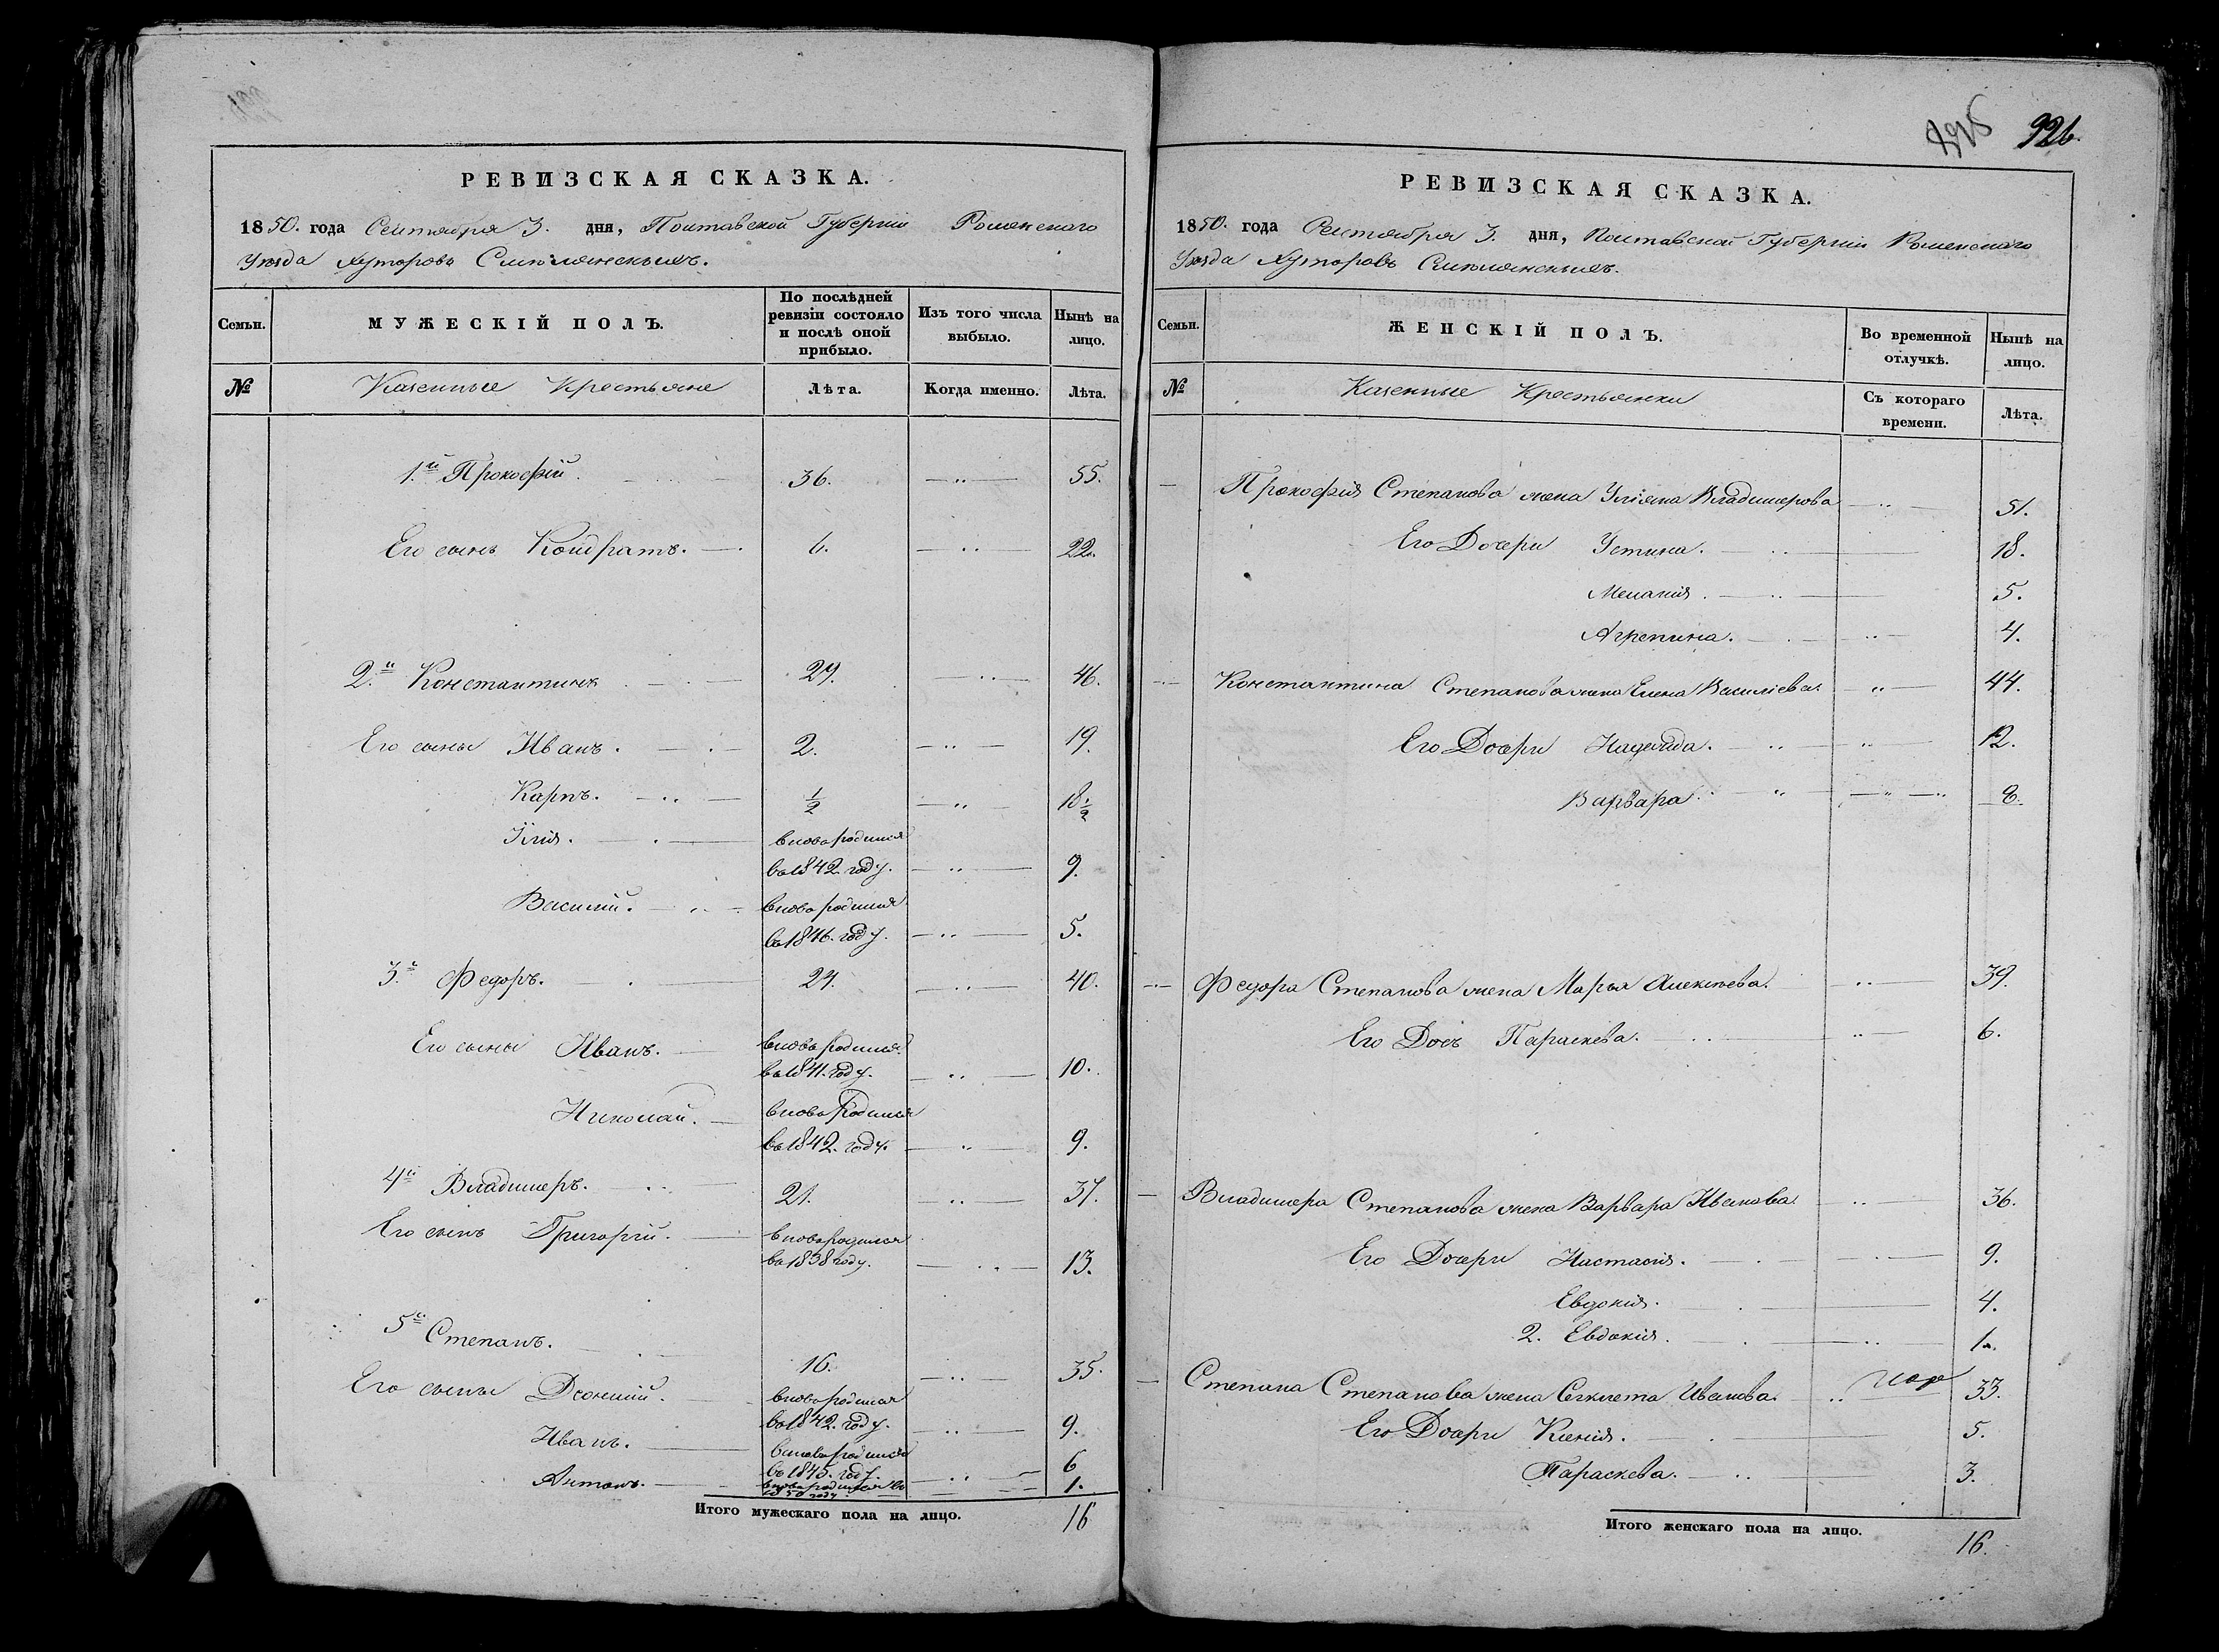 РЕВИЗСКАЯ СКАЗКА.
1850. года Сентября 3. дня, Полтавской Губерніи Роменскаго
Уѣзда Хуторовъ Смѣлянскихъ.
Семьи.
МУЖЕСКІЙ ПОЛЪ.
По послѣдней ревизіи состояло и послѣ оной прибыло.
Изъ того числа выбыло.
Нынѣ на лицо.
№ Казенные Крестьяне Лѣта. Когда именно. Лѣта.
1.й Прокофій. 36. 55.
Его сынъ Кондратъ. 6. 22.
2.й Константинъ 29. 46.
Его сыны Иванъ. 2. 19.
Карпъ. 1/2 18 1/2
Илія. вновь родился
въ 1842. году. 9.
Василий. вновь родился
въ 1846. году. 5.
3.й Федоръ. 24. 40.
Его сыны Иванъ. вновь родился
въ 1841. году. 10.
Николай. вновь родился
въ 1842. году. 9.
4й Владимеръ. 21. 37.
Его сынъ Григорій. вновь родился
въ 1838 году. 13.
5й Степанъ.
16. 35.
Его сыны вновь родился
въ 1842. году. 9.
Иванъ. вновь родился
въ 1845. году. 6
Антонъ. вновь родился въ
1850 году 1.
Итого мужескаго пола на лицо. 16
926.
РЕВИЗСКАЯ СКАЗКА.
1850. года Сентября 3. дня, Полтавской Губерніи Роменскаго
Уѣзда Хуторовъ Смѣлянскихъ.
Семьи.
ЖЕНСКІЙ ПОЛЪ.
Во временной отлучкѣ.
Нынѣ на лицо.
№ Казенные Крестьянки Съ котораго времени. Лѣта.
Прокофія Степанова жена Уліяна Владимерова 51.
Его Дочери Устина. 18.
Меланія. 5.
Агрепина. 4.
Константина Степанова жена Елена Василіева. 44.
Его Дочери Надежда. 12.
Варвара. 8.
Федора Степанова жена Марья Алексѣева. 39.
Его Дочь Параскева. 6.
Владимера Степанова жена Варвара Иванова. 36.
Его Дочери Настасія. 9.
Евдокія. 4.
2. Евдокія. 1.
Степана Степанова жена Секлета Иванова. 33.
Его Дочери Ксенія. 5.
Параскева. 3.
Итого женскаго пола на лицо. 16.